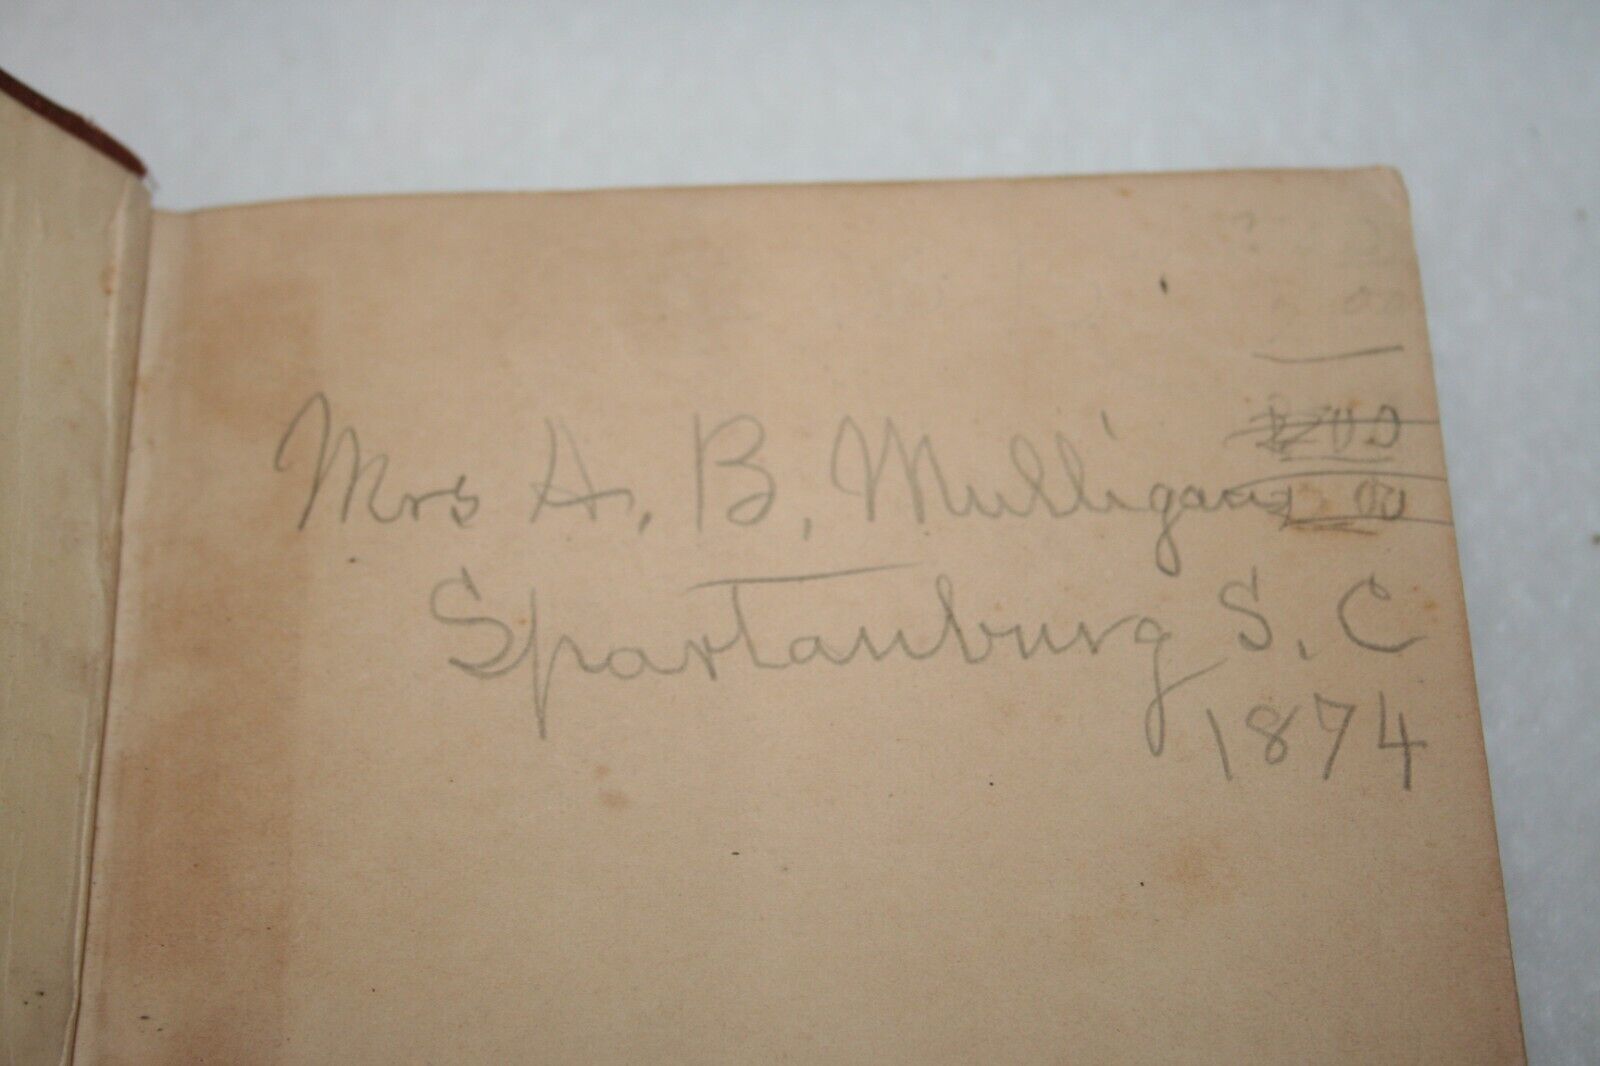 Mrs A. B. Mulligan
Spartanburg S. C
1874